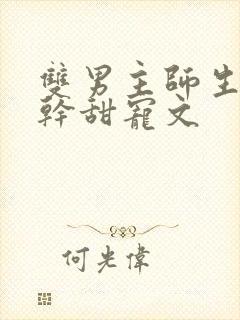 雙男主師生
幹甜寵文
何光偉